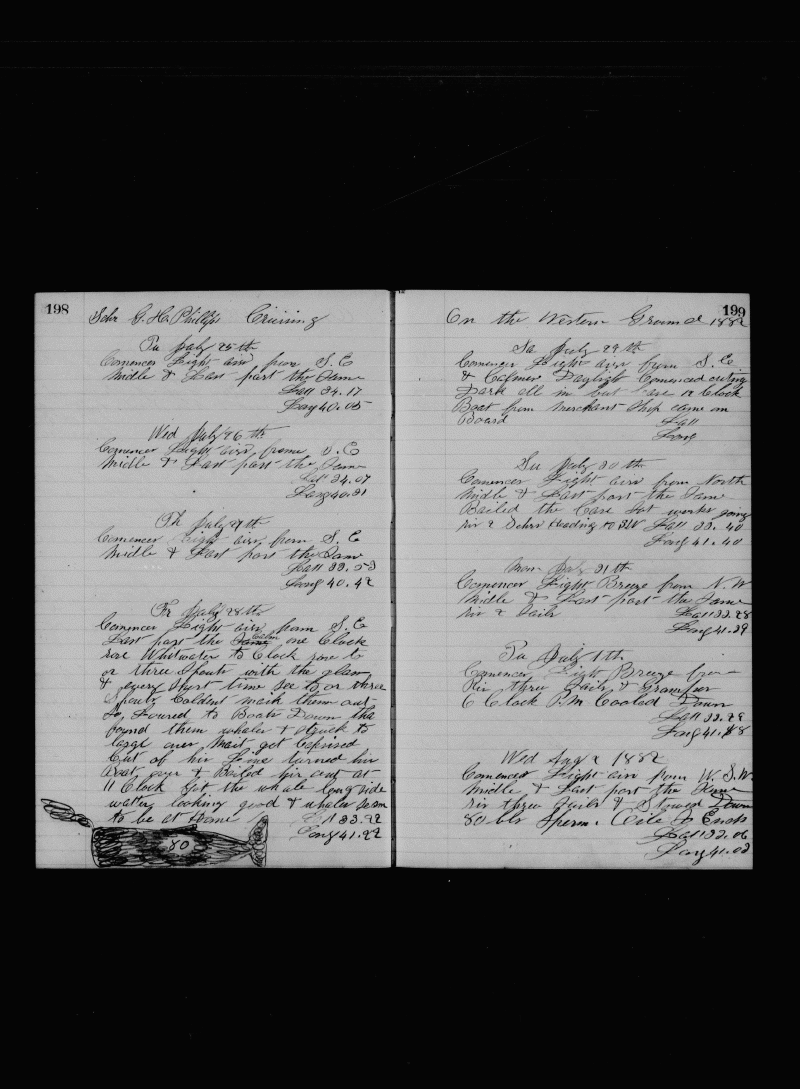 198
Schr G. H. Phillips Cruising
Tu July 25th
Comences Light airs from S. E
Midle & Last part the Same
Latt 34.17
Long 40.05
Wed July 26th
Comences Light airs from S. E
Midle & Last part the Same
Latt 34.07
Long 40.31
Th July 27th
Comences Light airs from S. E
Midle & Last part the Same
Latt 33.53
Long 40.42
Fr July 28th
Comences Light airs from S. E
Last part the Same Calm one Clock
Whitwater to Clock to
or three Spouts with the glass
& every Short time See to or three
Spouts Coldent make them out
So Lowred to Boats Down tha
found them whales & Struck to
large ones Mait get Capsised
Cut of his Line turned his
Boat over & Bailed hir out at
11 Clock Got the whale longside
water looking good & whales Seem
to be at Home
33.22
Long 41.22
80
199
On the Western Ground 1882
Sa July 29th
Comences Light airs from S. E
& Calmes Daylight Comenced cuting
Dark all in but Case 12 Clock
Boat from merchant Ship came on
Board Latt
Long
Su July 30th
Comences Light airs from North
Midle & Last part the Same
Bailed the Case Got works going
Latt 33.40
Long 41.40
Mon July 31th
Comences Light Breeze from N. W
Midle & Last part the Same
Latt 33.28
Long 41.39
Tu July 1th
Comences Light Breeze from
three Sails & Grampus
6 Clock P.M Cooled Down
Latt 33.29
Long 41.
Wed Aug 2 1882
Comences Light airs from W. S. W
Midle & Last part the Same
three Sails & Stowed Down
80 bls Sperm. Oile
Latt 33.06
Long 41.03